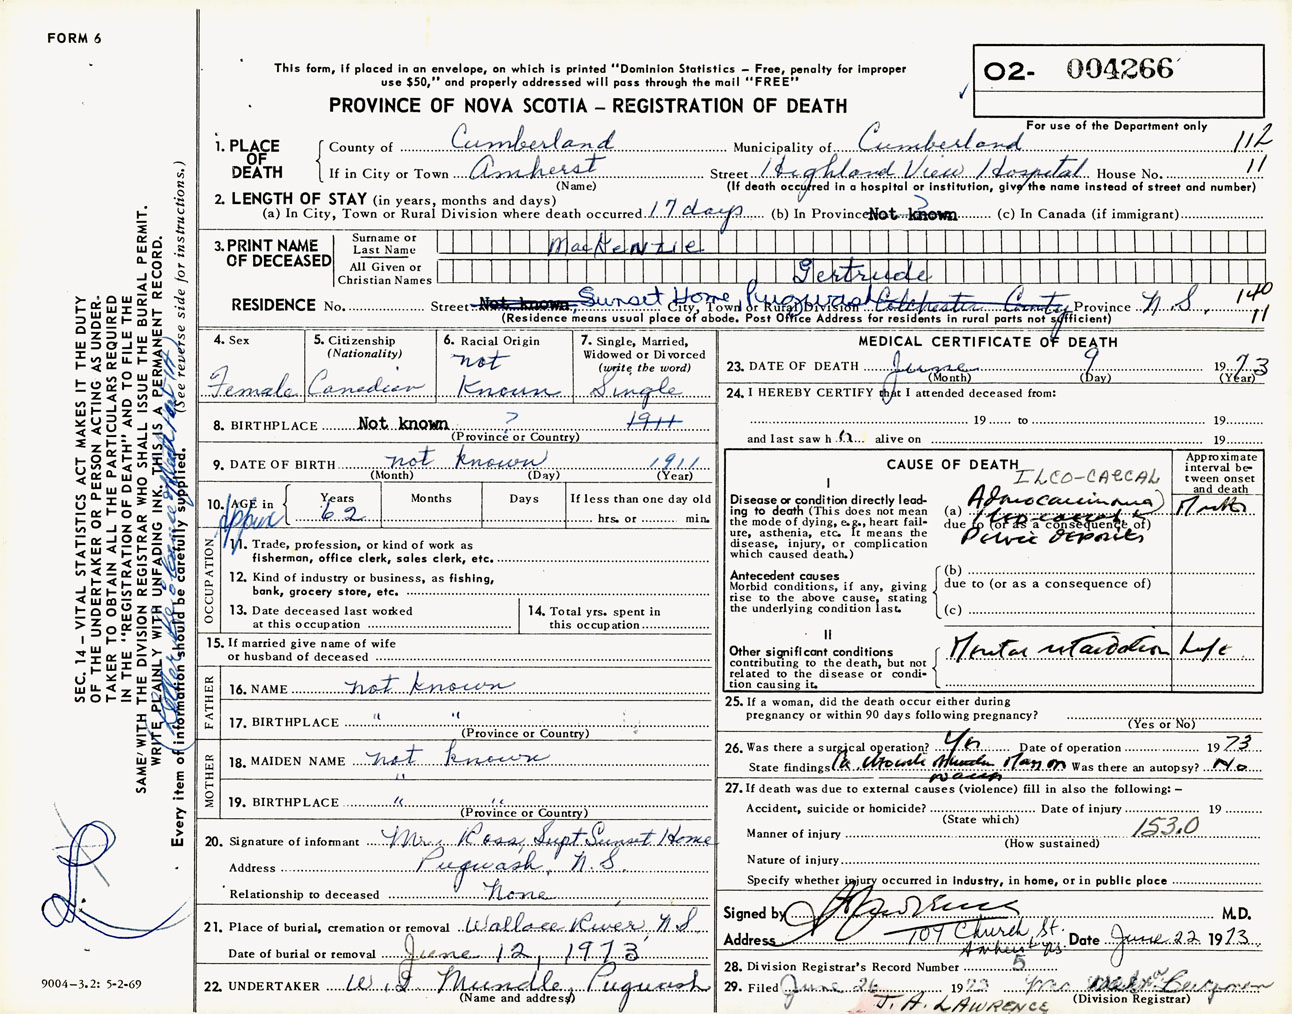 FORM 6
This form, if placed in an envelope, on which is printed "Dominion Statistics – Free, penalty for improper
use $50," and properly addressed will pass through the mail "FREE"
O2- 004266
For use of the Department only
PROVINCE OF NOVA SCOTIA – REGISTRATION OF DEATH
1. PLACE OF DEATH
County of Cumberland Municipality of Cumberland 112
If in City or Town Amherst Street Highland View Hospital House No. 11
(Name) (If death occurred in a hospital or institution, give the name instead of street and number)
2. LENGTH OF STAY (in years, months and days)
(a) In City, Town or Rural Division where death occurred 17 days (b) In Province Not known ? (c) In Canada (if immigrant)
3. PRINT NAME OF DECEASED
Surname or Last Name MacKenzie
All Given or Christian Names Gertrude
RESIDENCE No. Street Not known, Sunset Home Pugwash City, Town or Rural Division Colchester County Province N.S. 140 11
(Residence means usual place of abode. Post Office Address for residents in rural parts not sufficient)
4. Sex Female
5. Citizenship (Nationality) Canadian
6. Racial Origin not Known
7. Single, Married, Widowed or Divorced (write the word) Single
8. BIRTHPLACE Not known ? 1911
(Province or Country)
9. DATE OF BIRTH not known 1911
(Month) (Day) (Year)
10. AGE in Years Months Days If less than one day old
Approx 62 hrs. or min.
OCCUPATION
11. Trade, profession, or kind of work as
fisherman, office clerk, sales clerk, etc.
12. Kind of industry or business, as fishing,
bank, grocery store, etc.
13. Date deceased last worked
at this occupation
14. Total yrs. spent in
this occupation
15. If married give name of wife
or husband of deceased
FATHER
16. NAME not known
17. BIRTHPLACE " "
(Province or Country)
MOTHER
18. MAIDEN NAME not known
"
19. BIRTHPLACE " "
(Province or Country)
20. Signature of informant Mrs. Ross, Supt Sunset Home
Address Pugwash, N.S.
Relationship to deceased None
21. Place of burial, cremation or removal Wallace River, N.S.
Date of burial or removal June 12, 1973
22. UNDERTAKER Mundle, Pugwash
(Name and address)
MEDICAL CERTIFICATE OF DEATH
23. DATE OF DEATH June 9 1973
(Month) (Day) (Year)
24. I HEREBY CERTIFY that I attended deceased from:
19 to 19
and last saw h er alive on 19
CAUSE OF DEATH
Approximate interval between onset and death
I
ILEO-CAECAL
Disease or condition directly leading to death (This does not mean the mode of dying, e.g., heart failure, asthenia, etc. It means the disease, injury, or complication which caused death.)
(a) Adenocarcinoma
due to (or as a consequence of)
Pelvic deposits
Antecedent causes
Morbid conditions, if any, giving rise to the above cause, stating the underlying condition last.
(b)
due to (or as a consequence of)
(c)
II
Other significant conditions
contributing to the death, but not related to the disease or condition causing it.
Mental retardation Life
25. If a woman, did the death occur either during
pregnancy or within 90 days following pregnancy?
(Yes or No)
26. Was there a surgical operation? Yes Date of operation 1973
State findings Was there an autopsy? No
27. If death was due to external causes (violence) fill in also the following: –
Accident, suicide or homicide? Date of injury 19
(State which)
Manner of injury 153.0
(How sustained)
Nature of injury
Specify whether injury occurred in industry, in home, or in public place
Signed by M.D.
Address 109 Church St. Amherst NS Date June 22 1973
28. Division Registrar's Record Number 5
29. Filed June 26 1973 Mrs
(Division Registrar)
J. A. LAWRENCE
SEC. 14 – VITAL STATISTICS ACT MAKES IT THE DUTY
OF THE UNDERTAKER OR PERSON ACTING AS UNDER-
TAKER TO OBTAIN ALL THE PARTICULARS REQUIRED
IN THE "REGISTRATION OF DEATH" AND TO FILE THE
SAME WITH THE DIVISION REGISTRAR WHO SHALL ISSUE THE BURIAL PERMIT.
WRITE PLAINLY WITH UNFADING INK. THIS IS A PERMANENT RECORD.
Every item of information should be carefully supplied. (See reverse side for instructions.)
9004-3.2: 5-2-69